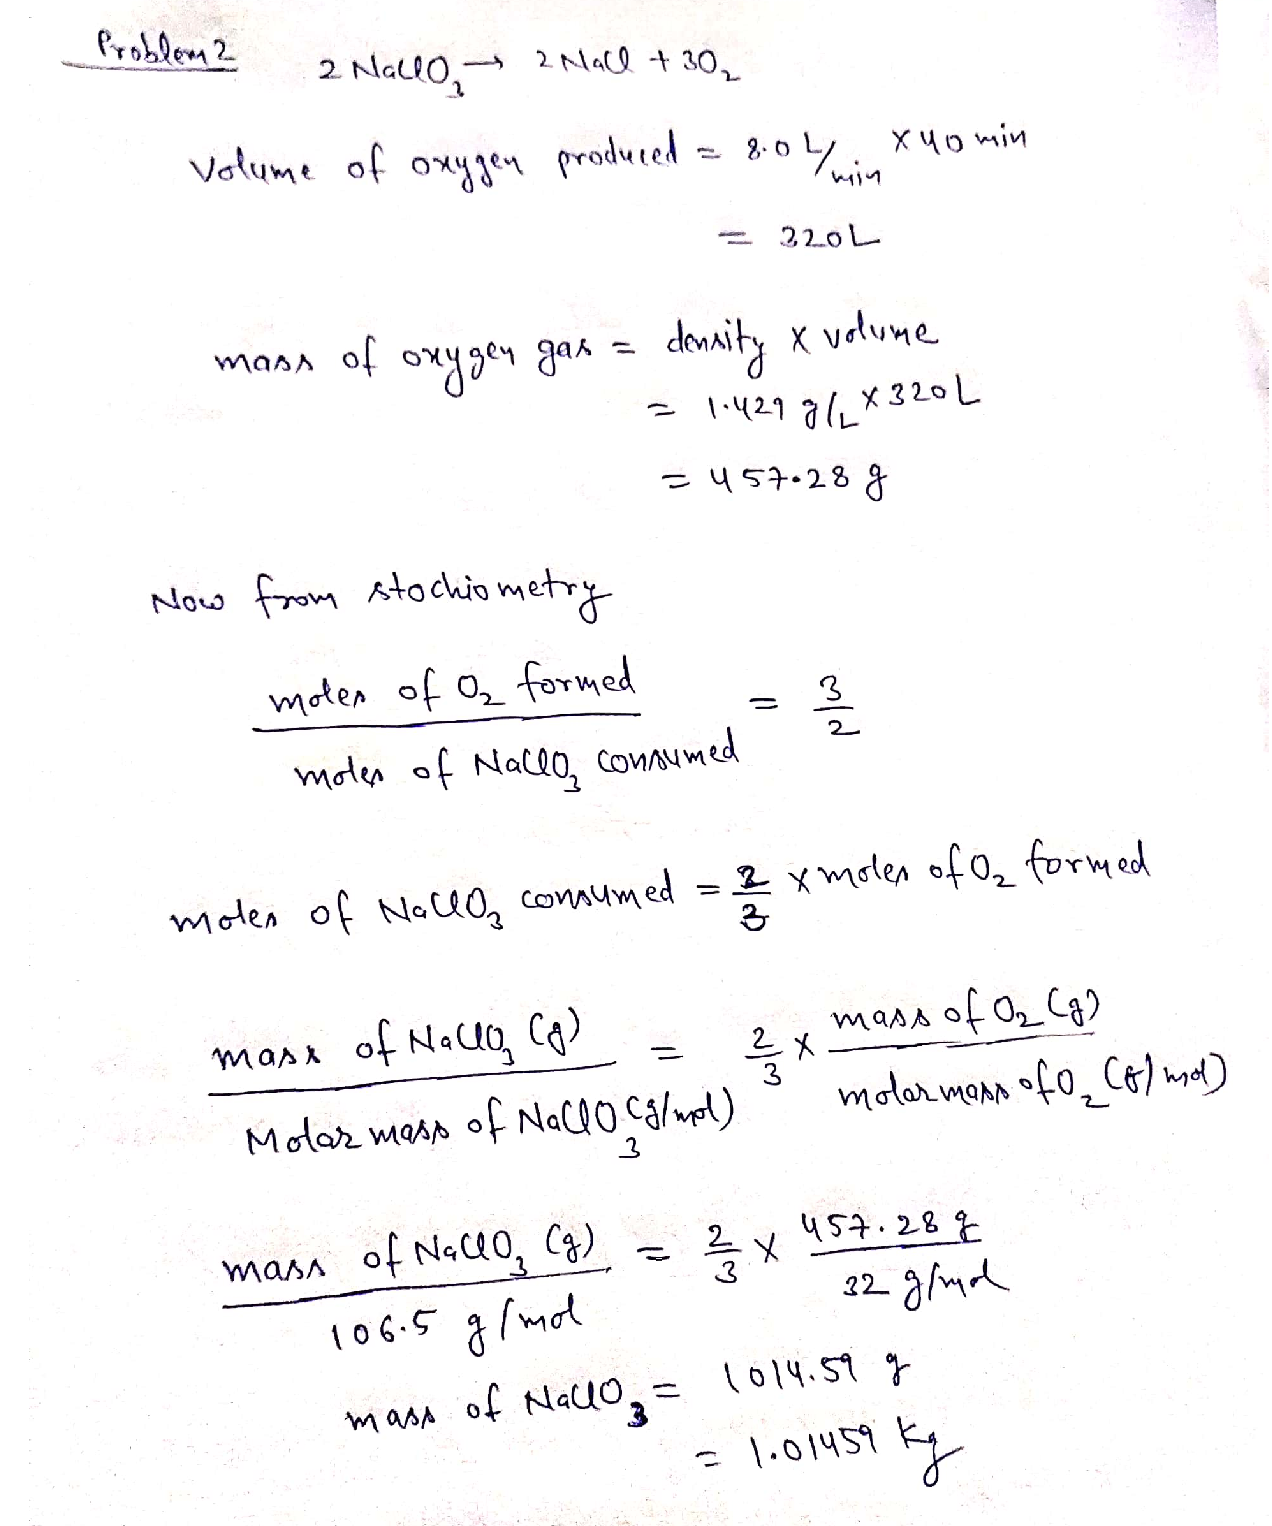 Problem 2
2 NaClO₃ → 2 NaCl + 3O₂
Volume of oxygen produced = 8.0 L/min × 40 min
= 320L
mass of oxygen gas = density × volume
= 1.429 g/L × 320 L
= 457.28 g
Now from stochiometry
moles of O₂ formed / moles of NaClO₃ consumed = 3/2
moles of NaClO₃ consumed = 2/3 × moles of O₂ formed
mass of NaClO₃ (g) / Molar mass of NaClO₃ (g/mol) = 2/3 × mass of O₂ (g) / molar mass of O₂ (g/mol)
mass of NaClO₃ (g) / 106.5 g/mol = 2/3 × 457.28 g / 32 g/mol
mass of NaClO₃ = 1014.59 g
= 1.01459 Kg